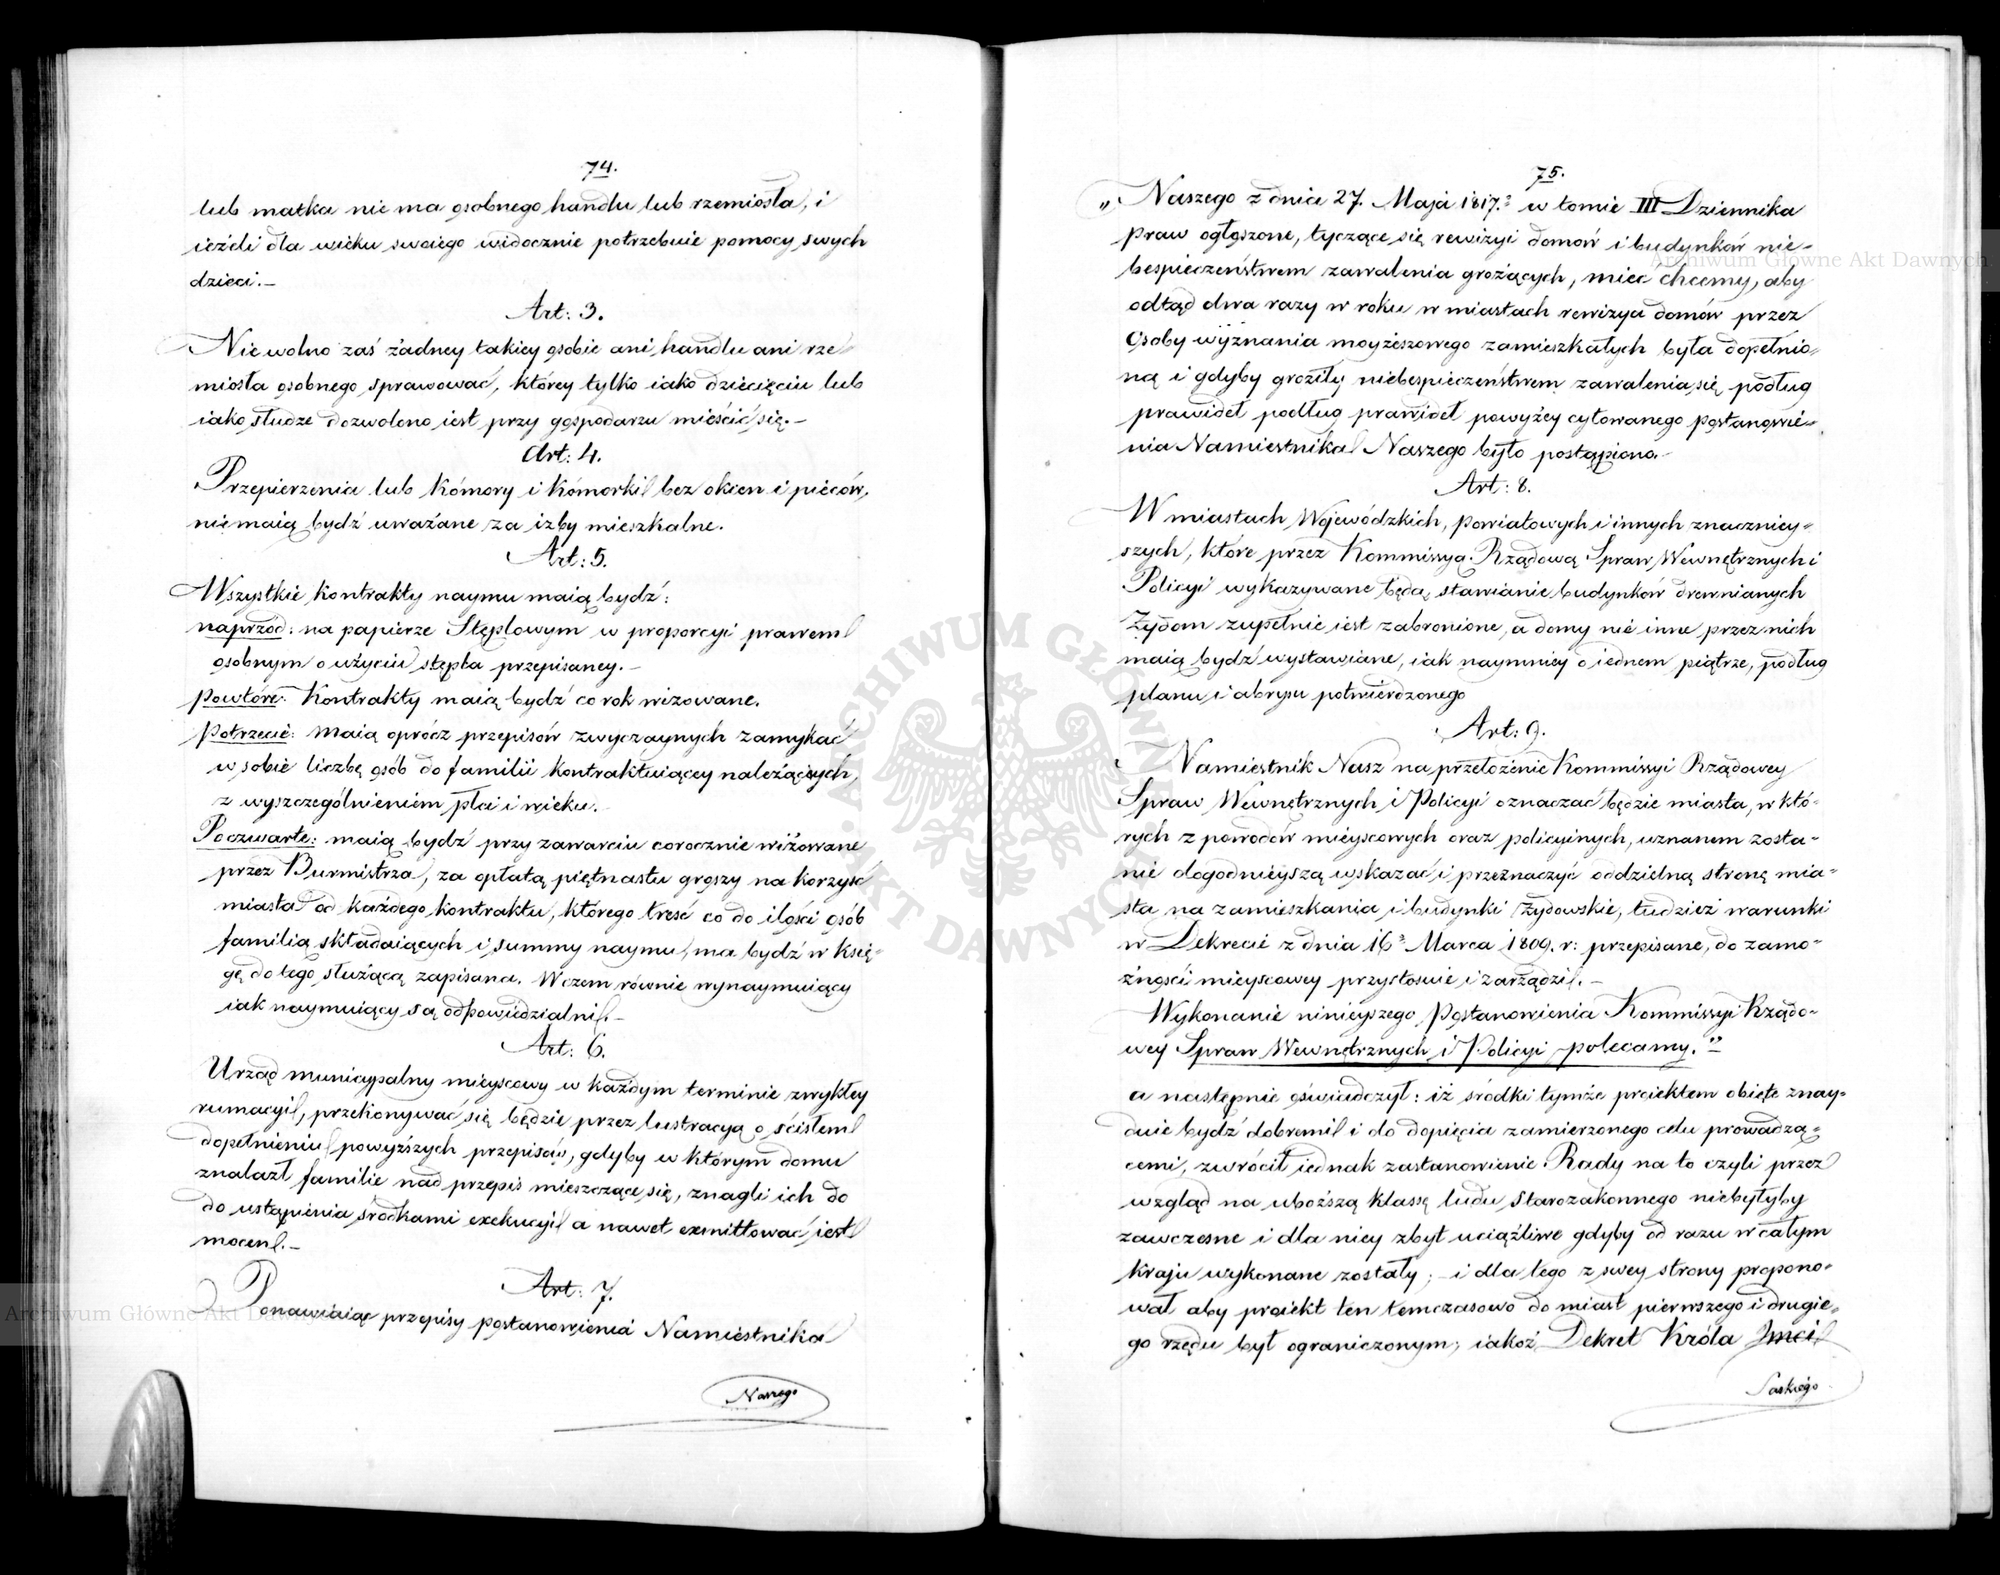 74.
lub matka nie ma osobnego handlu lub rzemiosła, i
ieżeli dla wieku swoiego widocznie potrzebuie pomocy swych
dzieci.—
Art: 3.
Nie wolno zaś żadney takiey osobie ani handlu ani rze-
miosła osobnego sprawować, którey tylko iako dziecięciu lub
iako słudze dozwolono iest przy gospodarzu mieścić się.—
Art: 4.
Przepierzenia lub Kómory i Kómorki bez okien i pieców,
nie maią bydź uważane za izby mieszkalne.
Art: 5.
Wszystkie kontrakty naymu maią bydź:
naprzód: na papierze Stęplowym w proporcyi prawem
osobnym o użyciu stępla przepisaney.—
powtóre: Kontrakty maią bydź co rok wizowane.
Potrzecie: maią oprócz przepisów zwyczaynych zamykać
w sobie liczbę osób do familii kontraktuiącey należących,
z wyszczególnieniem płci i wieku.—
Poczwarte: maią bydź przy zawarciu corocznie wizowane
przez Burmistrza, za opłatą piętnastu groszy na korzyść
miasta od każdego kontraktu, którego treść co do ilości osób
familią składaiących i summy naymu, ma bydź w Ksią-
gę do tego służącą zapisana. W czem równie wynaymuiący
iak naymuiący są odpowiedzialni.—
Art: 6.
Urząd municypalny mieyscowy w każdym terminie zwykłey
rumacyi, przekonywać się będzie przez lustracyą o ścisłem
dopełnieniu powyższych przepisów, gdyby w którym domu
znalazł familie nad przepis mieszczące się, znagli ich do
do ustąpienia środkami exekucyi a nawet exmittować iest
mocen.—
Art: 7.
Ponawiaiąc przepisy postanowienia Namiestnika
Naszego
75.
„Naszego z dnia 27. Maja 1817.º w tomie III Dziennika
praw ogłoszone, tyczące się rewizyi domów i budynków nie-
bespieczeństwem zawalenia grożących, mieć chcemy, aby
odtąd dwa razy w roku w miastach rewizya domów przez
Osoby wyznania moyżeszowego zamieszkałych była dopełnio-
ną i gdyby groziły niebespieczeństwem zawalenia się, podług
prawideł podług prawideł powyżey cytowanego postanowie-
nia Namiestnika Naszego było postąpiono.—
Art: 8.
W miastach Wojewódzkich, powiatowych i innych znaczniey-
szych, które przez Kommissyą Rządową Spraw Wewnętrznych i
Policyi wykazywane będą, stawianie budynków drewnianych
Żydom zupełnie iest zabronione, a domy nie inne przez nich
maią bydź wystawiane, iak naymniey o iednem piątrze, podług
planu i abrysu potwierdzonego
Art: 9.
Namiestnik Nasz na przełożenie Kommissyi Rządowey
Spraw Wewnętrznych i Policyi oznaczać będzie miasta, w któ-
rych z powodów mieyscowych oraz policyinych, uznanem zosta-
nie dogodnieyszą wskazać i przeznaczyć oddzielną stronę mia-
sta na zamieszkania i budynki Żydowskie, tudzież warunki
w Dekrecie z dnia 16º Marca 1809. r: przepisane, do zamo-
żności mieyscowey przystosuie i zarządzi.—
Wykonanie ninieyszego Postanowienia Kommissyi Rządo-
wey Spraw Wewnętrznych i Policyi polecamy.”
a następnie oświadczył: iż środki tymże proiektem obięte znay-
duie bydź dobremi i do dopięcia zamierzonego celu prowadzą-
cemi, zwrócił iednak zastanowienie Rady na to czyli przez
wzgląd na uboższą klassę ludu Starozakonnego niebyłyby
zawczesne i dla niey zbyt uciążliwe gdyby od razu w całym
Kraju wykonane zostały; — i dla tego z swey strony propono-
wał aby proiekt ten temczasowo do miast pierwszego i drugie-
go rzędu był ograniczonym; iakoż Dekret Króla Jmci
Saskiego
Archiwum Główne Akt Dawnych
Archiwum Główne Akt Dawnych
ARCHIWUM GŁÓWNE AKT DAWNYCH